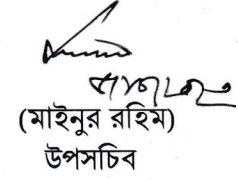 (মাইনুর রহিম)
উপসচিব